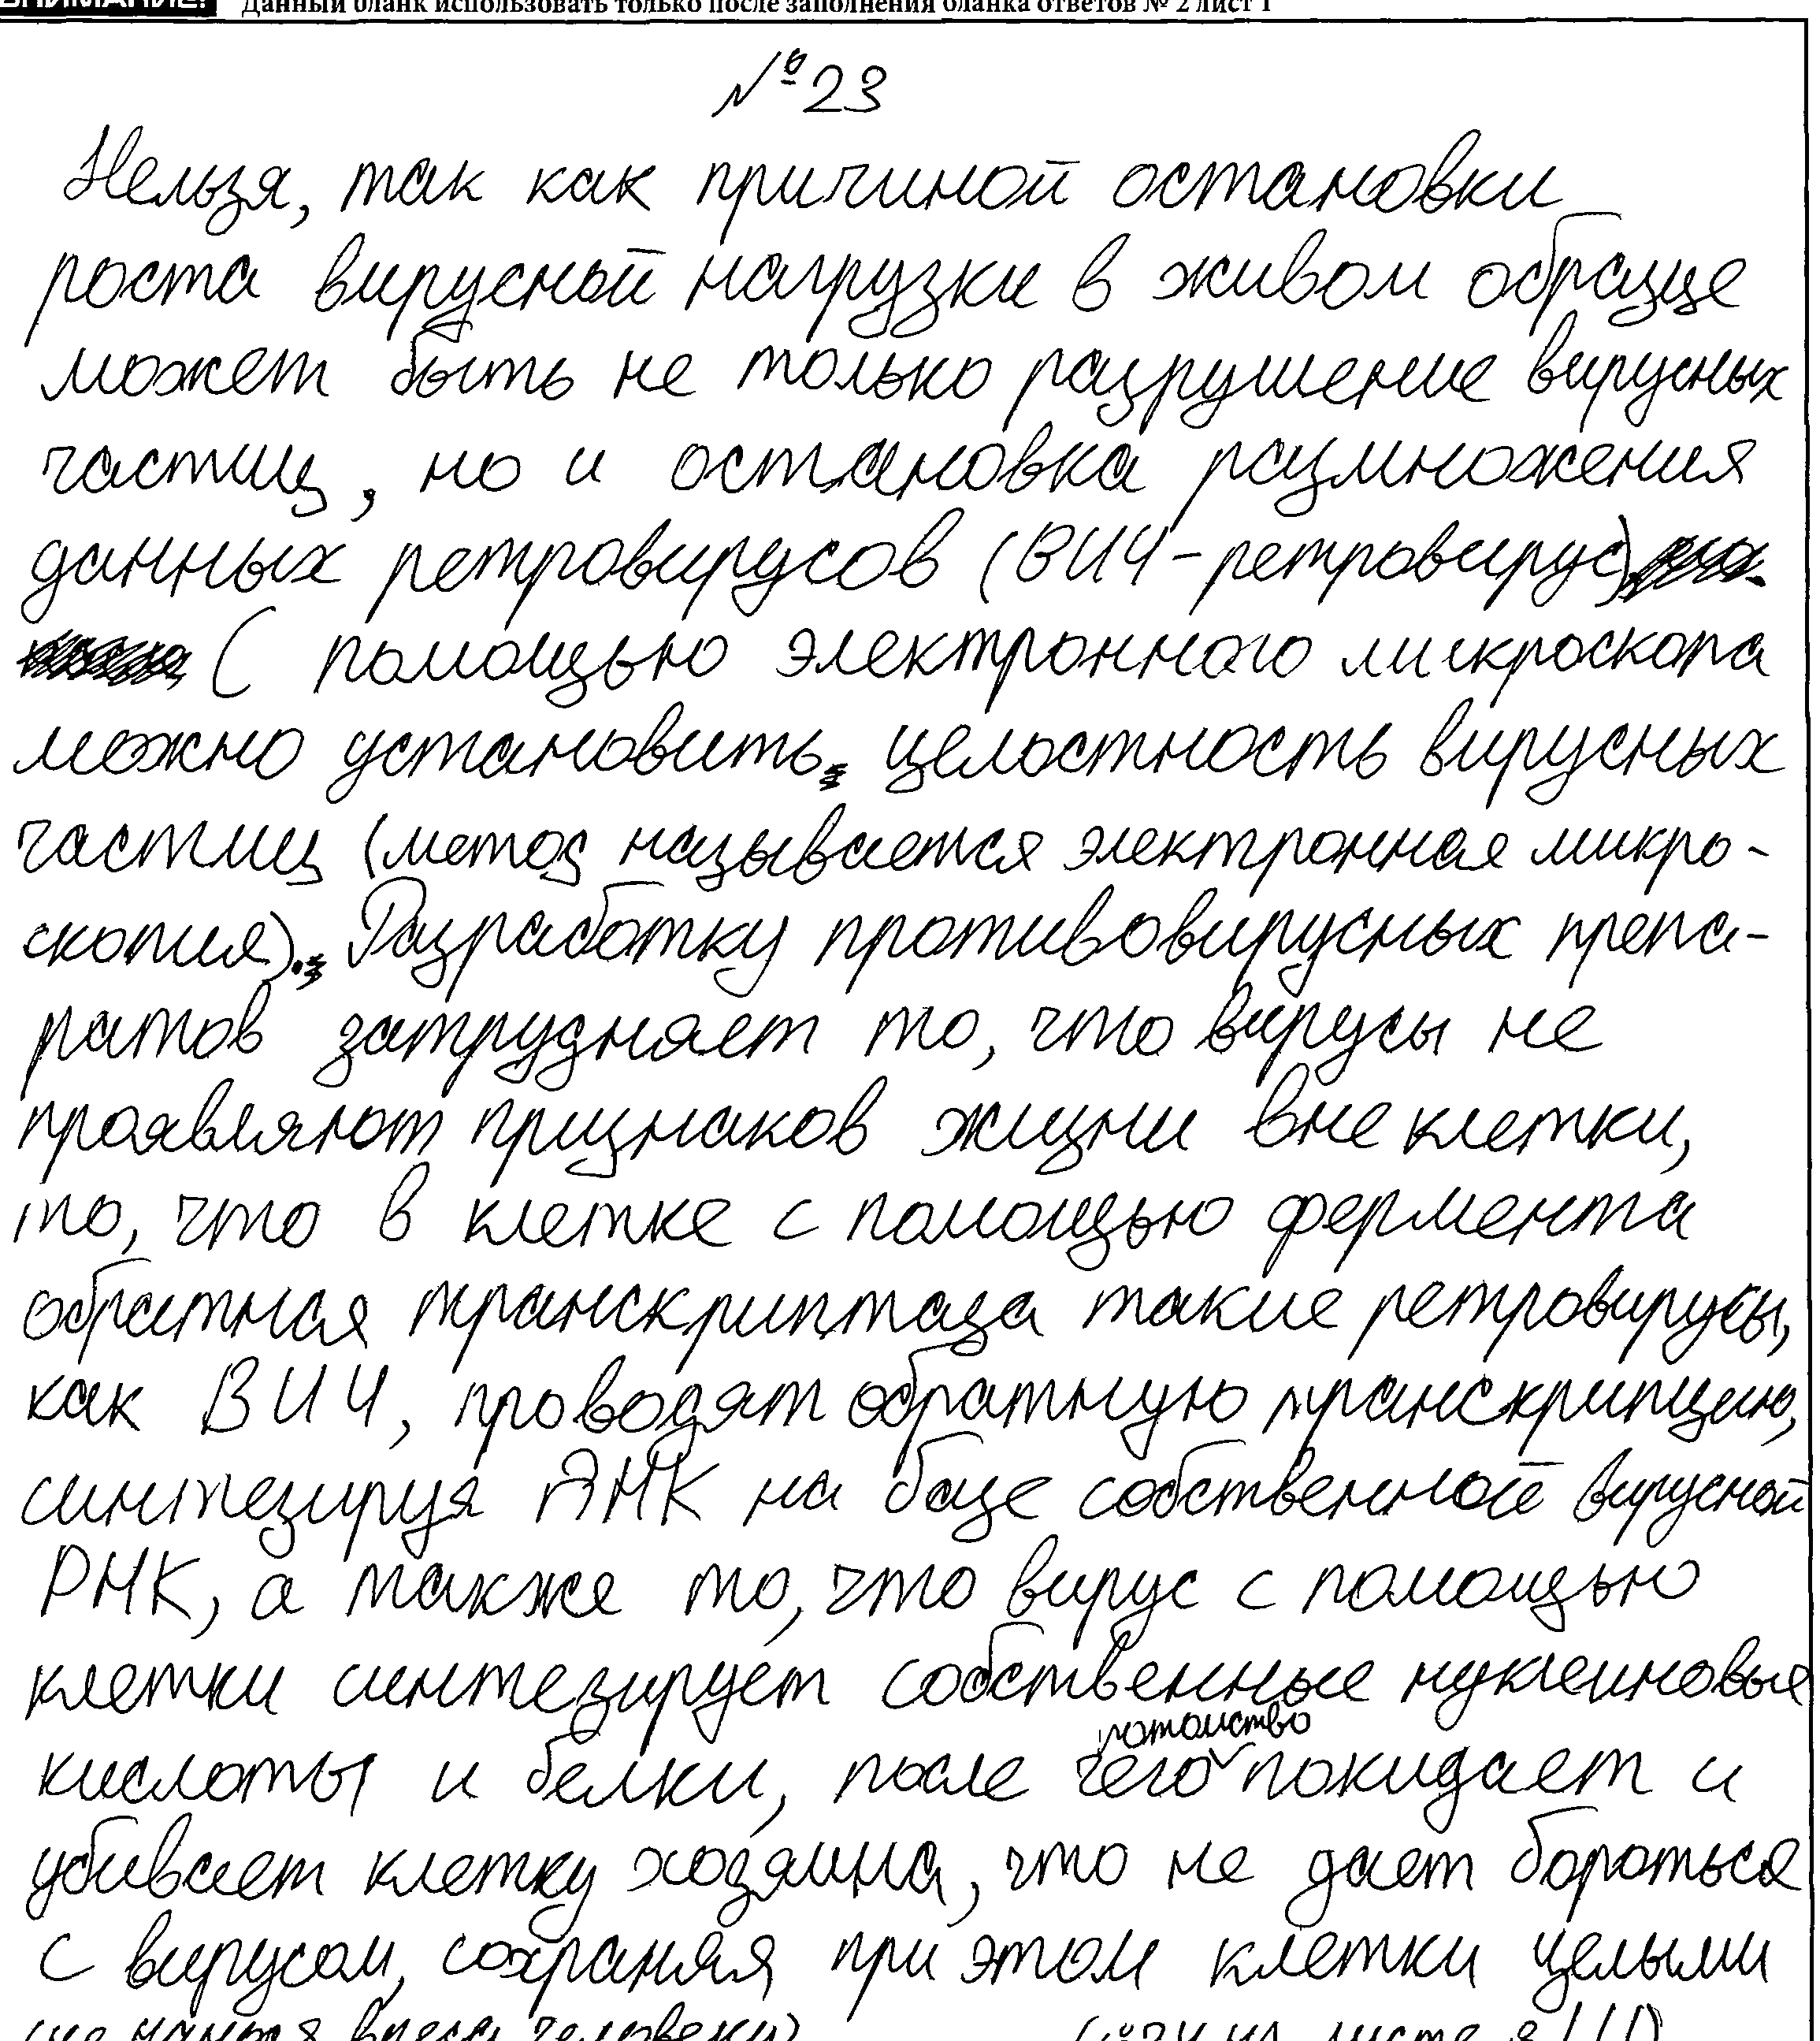 Данный бланк использовать только после заполнения бланка ответов № 2 лист 1
№23
Нельзя, так как причиной остановки
роста вирусной нагрузки в живом образце
может быть не только разрушение вирусных
частиц, но и остановка размножения
данных ретровирусов (ВИЧ-ретровирус)
С помощью электронного микроскопа
можно установить целостность вирусных
частиц (метод называется электронная микро-
скопия). Разработку противовирусных препа-
ратов затрудняет то, что вирусы не
проявляют признаков жизни вне клетки,
то, что в клетке с помощью фермента
обратная транскриптаза такие ретровирусы,
как ВИЧ, проводят обратную транскрипцию,
синтезируя ДНК на базе собственной вирусной
РНК, а также то, что вирус с помощью
клетки синтезирует собственные нуклеиновые
потомство
кислоты и белки, после чего покидает и
убивает клетку хозяина, что не дает бороться
с вирусом, сохраняя при этом клетки целыми
человека)